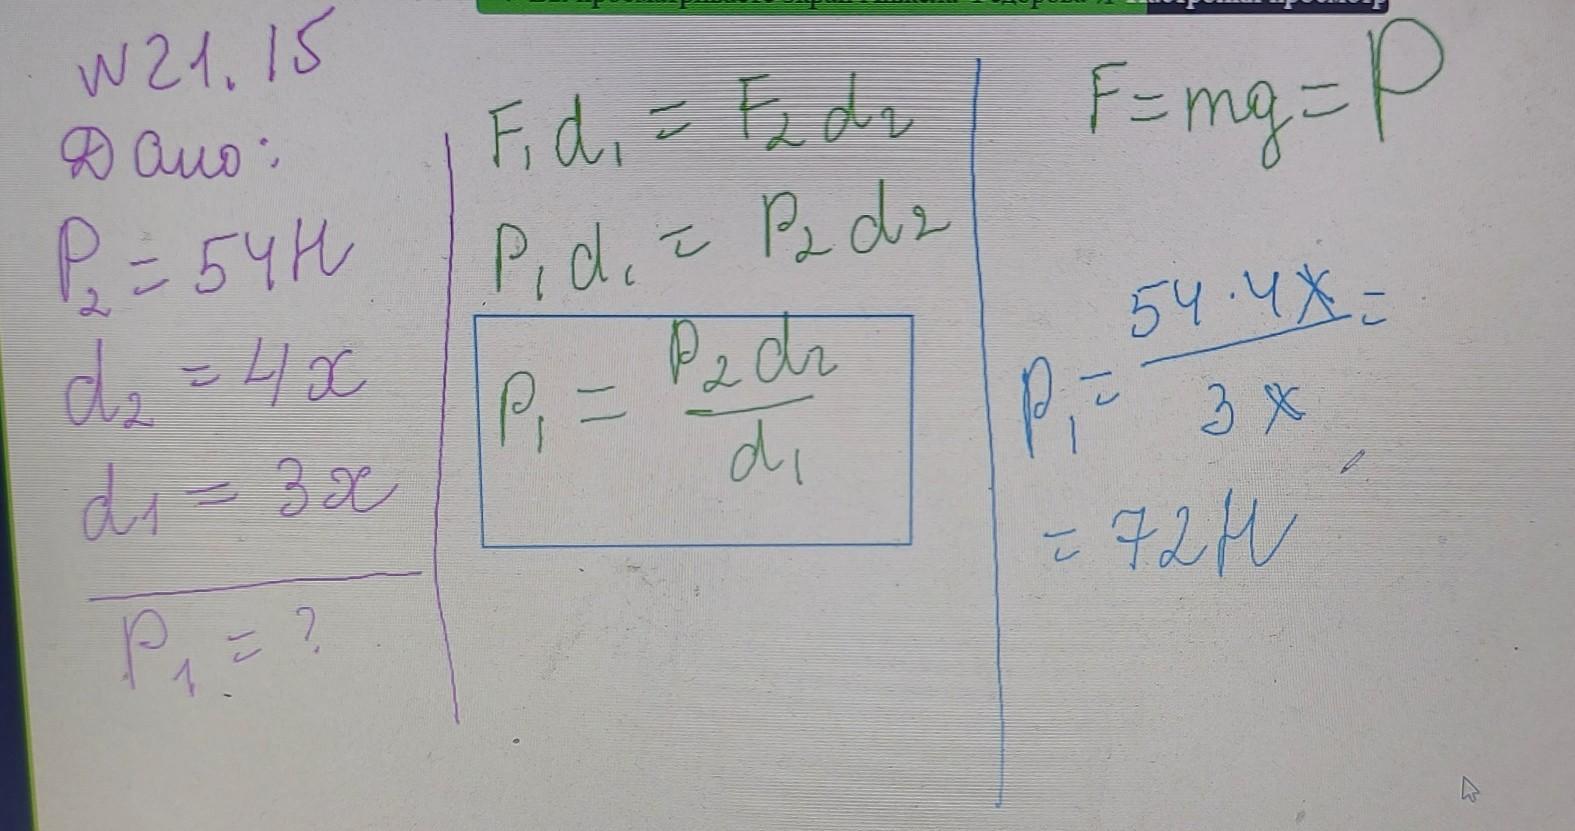 N21.15
Дано:
P₂ = 54Н
d₂ = 4x
d₁ = 3x
P₁ = ?
F₁d₁ = F₂d₂
P₁d₁ = P₂d₂
P₁ = P₂d₂ / d₁
F = mg = P
P₁ = 54·4x / 3x =
= 72Н